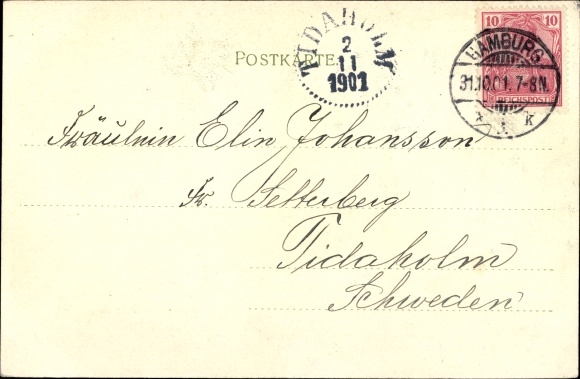 10 10
REICHSPOST
HAMBURG
31.10.01. 7-8N.
* 1. k
TIDAHOLM
2
11
1901
POSTKARTE
Fräulein Elin Johansson
Fr. Setterberg
Tidaholm
Schweden